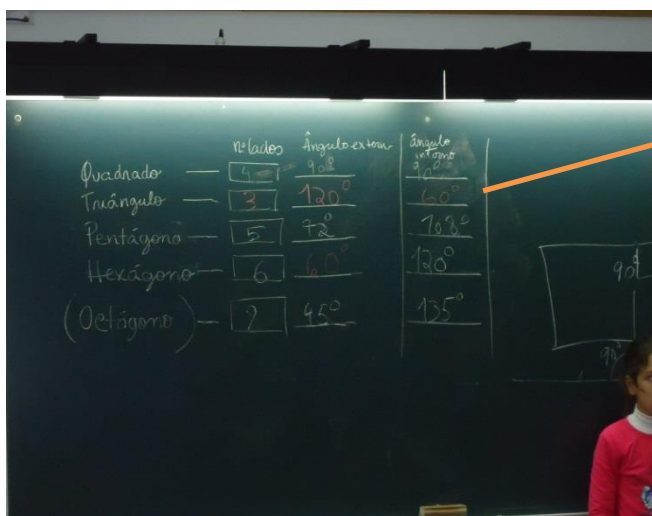 nº lados Ângulo extern ângulo interno
Quadrado — 4 90º 90º
Triângulo — 3 120º 60º
Pentágono — 5 72º 108º
Hexágono — 6 60º 120º
(Octógono) — 2 45º 135º
90º
90º